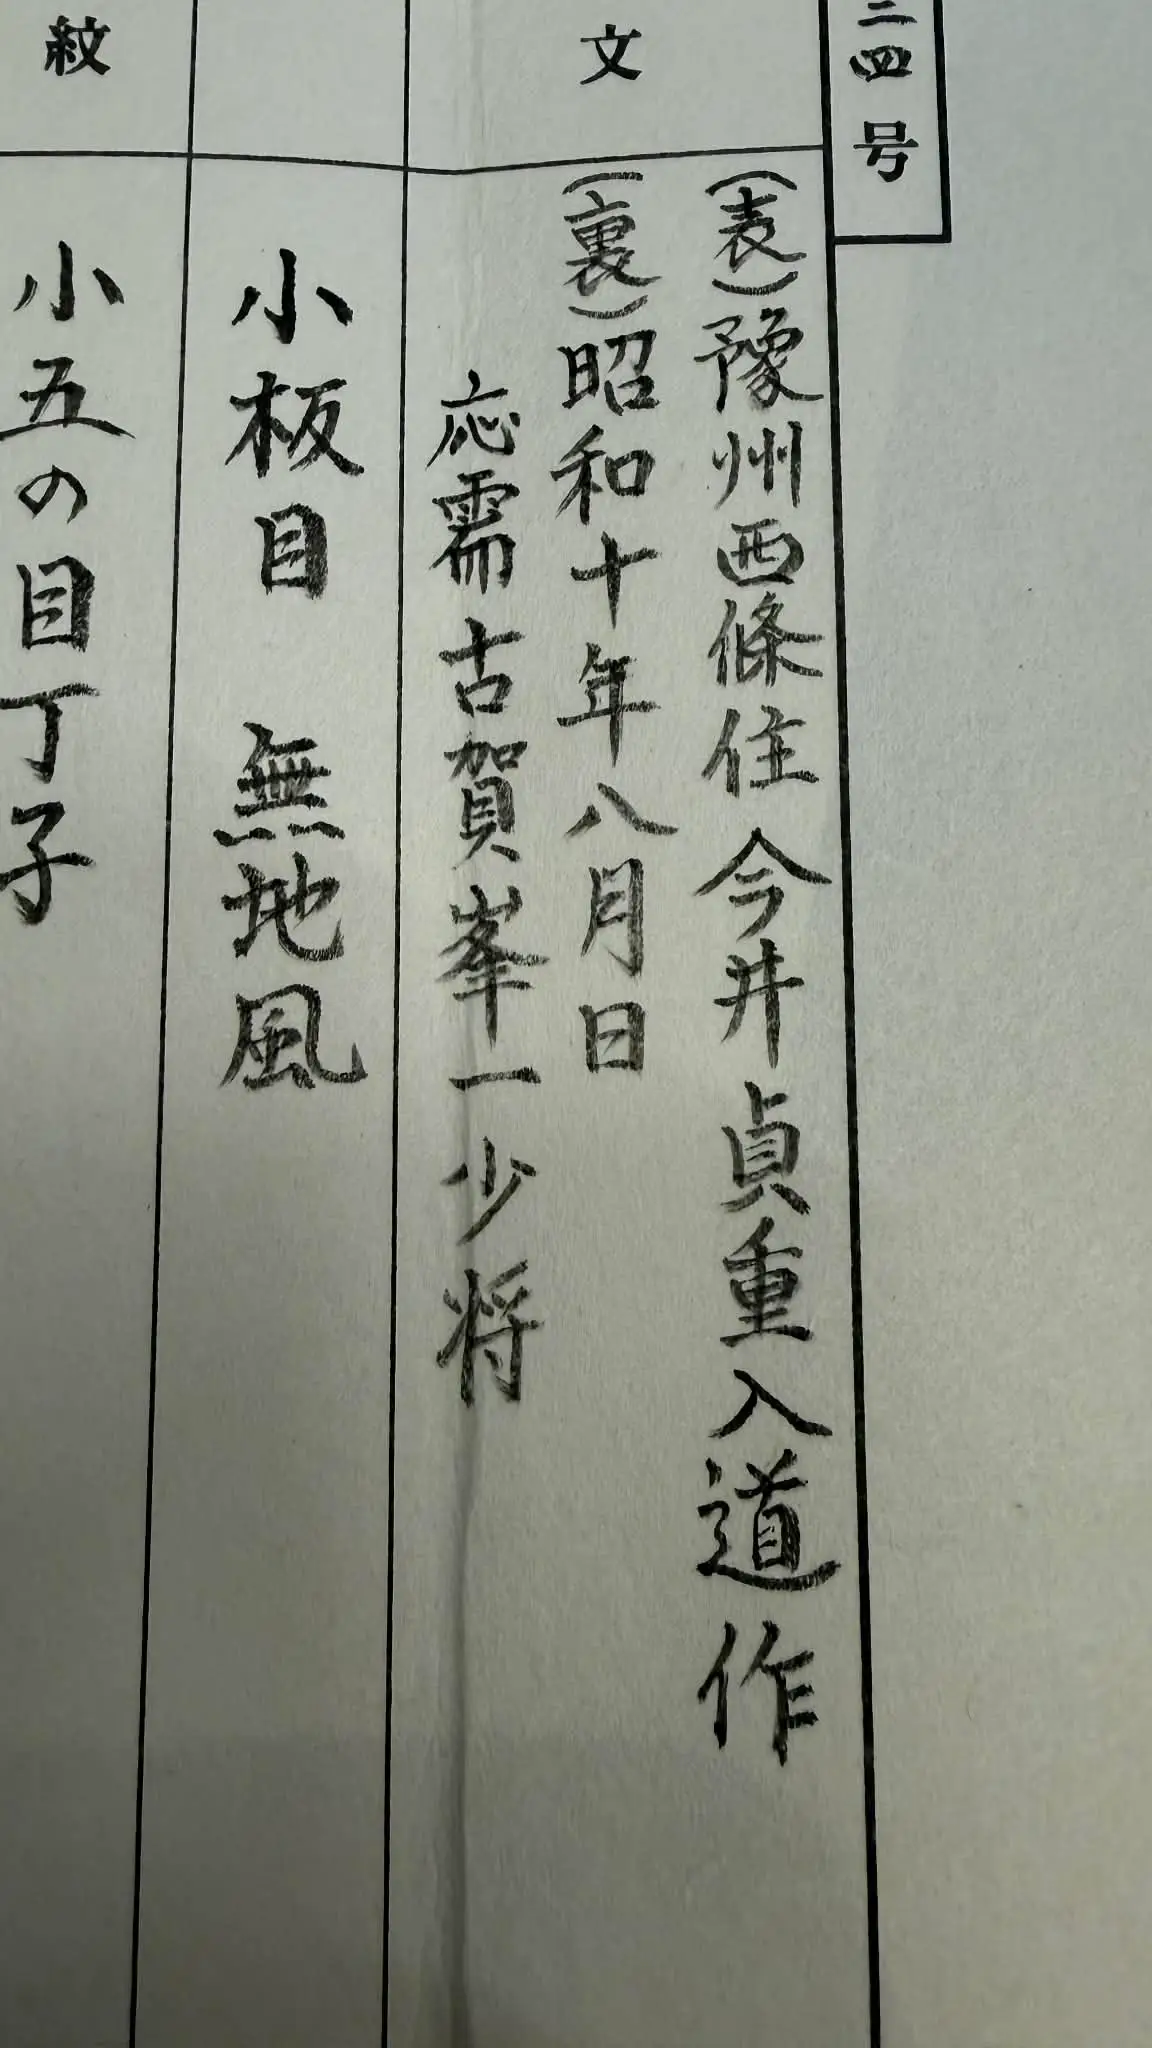 三四号
文
(表)豫州西條住今井貞重入道作
(裏)昭和十年八月日
応需古賀峯一少将
小板目 無地風
紋
小五の目丁子